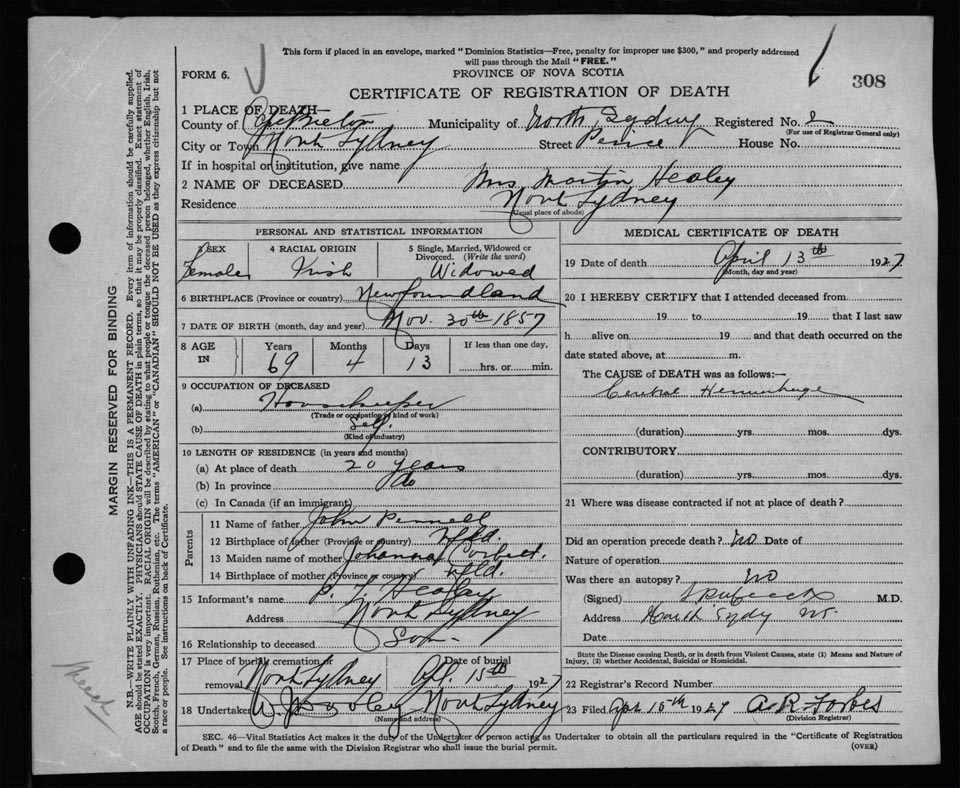 This form if placed in an envelope, marked "Dominion Statistics—Free, penalty for improper use $300," and properly addressed
will pass through the Mail "FREE."
FORM 6.
PROVINCE OF NOVA SCOTIA
308
CERTIFICATE OF REGISTRATION OF DEATH
1 PLACE OF DEATH—
County of Cape Breton Municipality of North Sydney Registered No. 2
(For use of Registrar General only)
City or Town North Sydney Street Peirce House No.
If in hospital or institution, give name
2 NAME OF DECEASED Mrs Martin Healey
Residence North Sydney
(Usual place of abode)
PERSONAL AND STATISTICAL INFORMATION
3 SEX Female
4 RACIAL ORIGIN Irish
5 Single, Married, Widowed or Divorced. (Write the word) Widowed
6 BIRTHPLACE (Province or country) Newfoundland
7 DATE OF BIRTH (month, day and year) Nov. 30th 1857
8 AGE IN Years 69 Months 4 Days 13 If less than one day, hrs. or min.
9 OCCUPATION OF DECEASED
(a) Housekeeper
(Trade or occupation or kind of work)
(b) Self.
(Kind of industry)
10 LENGTH OF RESIDENCE (in years and months)
(a) At place of death 20 years
(b) In province do
(c) In Canada (if an immigrant)
Parents
11 Name of father John Pennell
12 Birthplace of father (Province or country) Nfld.
13 Maiden name of mother Johanna Corbett.
14 Birthplace of mother (Province or country) Nfld.
15 Informant's name P. T. Healey
Address North Sydney
16 Relationship to deceased Son
17 Place of burial, cremation or removal North Sydney Date of burial Apl. 15th 1927
18 Undertaker W. J. Dooley North Sydney
(Name and address)
MEDICAL CERTIFICATE OF DEATH
19 Date of death April 13th 1927
(Month, day and year)
20 I HEREBY CERTIFY that I attended deceased from
19 to 19 that I last saw
h alive on 19 and that death occurred on the
date stated above, at m.
The CAUSE of DEATH was as follows:—
Cerebral Hemorrhage
(duration) yrs. mos. dys.
CONTRIBUTORY
(duration) yrs. mos. dys.
21 Where was disease contracted if not at place of death?
Did an operation precede death? no Date of
Nature of operation
Was there an autopsy? no
(Signed) M.D.
Address North Sydy NS.
Date
State the Disease causing Death, or in death from Violent Causes, state (1) Means and Nature of
Injury, (2) whether Accidental, Suicidal or Homicidal.
22 Registrar's Record Number
23 Filed Apl 15th 1927 A R Forbes
(Division Registrar)
SEC. 46—Vital Statistics Act makes it the duty of the Undertaker or person acting as Undertaker to obtain all the particulars required in the "Certificate of Registration
of Death" and to file the same with the Division Registrar who shall issue the burial permit.
(OVER)
MARGIN RESERVED FOR BINDING
N.B.—WRITE PLAINLY WITH UNFADING INK—THIS IS A PERMANENT RECORD. Every item of information should be carefully supplied.
AGE should be stated EXACTLY. PHYSICIANS should STATE CAUSE OF DEATH in plain terms, so that it may be properly classified. Exact statement of
OCCUPATION is very important. RACIAL ORIGIN will be described by stating to what people or tongue the deceased person belonged, whether English, Irish,
Scotch, French, German, Russian, Ruthenian, etc. The terms "AMERICAN" or "CANADIAN" SHOULD NOT BE USED as they express citizenship but not
a race or people. See instructions on back of Certificate.